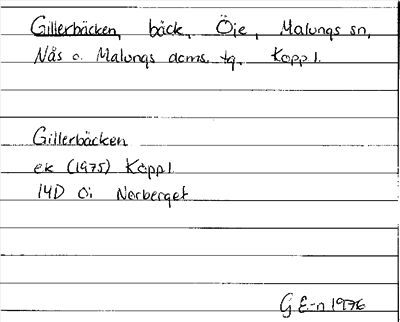 Gillerbäcken, bäck, Öje, Malungs sn,
Nås o. Malungs dcms. tg. Kopp l.
Gillerbäcken
ek (1975) Kopp l
14D 0i Norberget
G E-n 1976